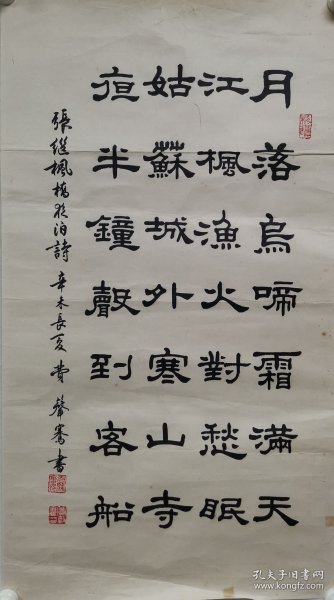 月落烏啼霜滿天
江楓漁火對愁眠
姑蘇城外寒山寺
夜半鐘聲到客船
張繼楓橋夜泊詩 辛未長夏 費聲騫書
孔夫子旧书网
www.kongfz.com